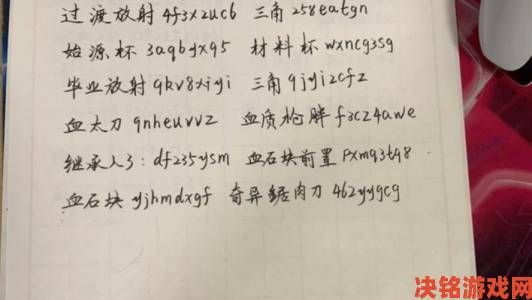 过渡放射 4f3x2uc6 三角 258eatgn
始源杯 3aqbyxq5 材料杯 wxncg3sg
毕业放射 qkv8xiyi 三角 9jyizcfz
血太刀 qnheuvvz 血质枪胖 f3cz4awe
继承人3: df235ysm 血石块前置 pxmq3tq8
血石块 yjhmdxgf 奇异锯肉刀 462yygcg
决铭游戏网